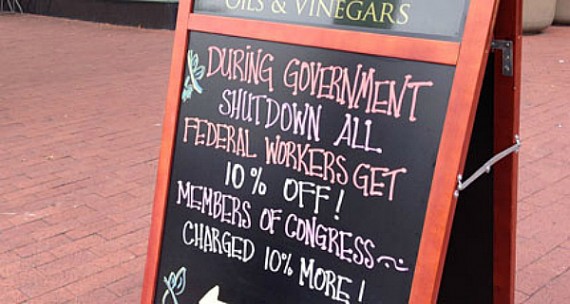 OILS & VINEGARS
DURING GOVERNMENT
SHUTDOWN ALL
FEDERAL WORKERS GET
10% OFF!
MEMBERS OF CONGRESS~
CHARGED 10% MORE!